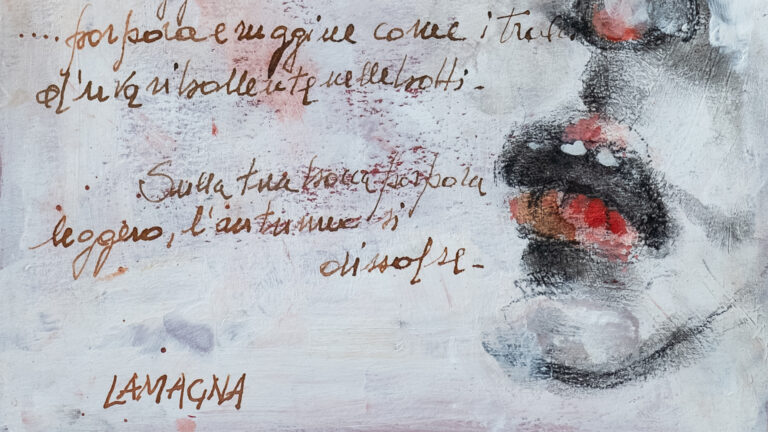 .... porpora e ruggine come i tralci
d'uva ribollente nelle botti.
Sulla tua bocca porpora
leggero, l'autunno si
dissolse.
LAMAGNA